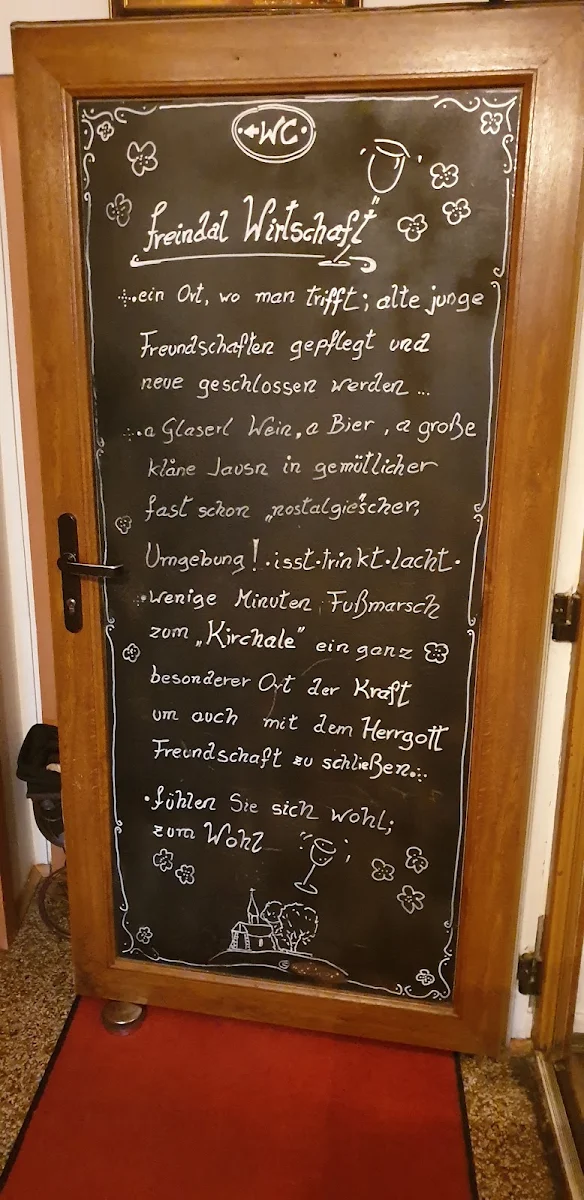 ←WC
freindal Wirtschaft"
.ein Ort, wo man trifft; alte junge
Freundschaften gepflegt und
neue geschlossen werden ...
.a Glaserl Wein, a Bier, a große
klåne Jausn in gemütlicher
fast schon „nostalgie"scher,
Umgebung! .isst.trinkt.lacht.
.wenige Minuten Fußmarsch
zum „Kirchale" ein ganz
besonderer Ort der Kraft
um auch mit dem Herrgott
Freundschaft zu schließen...
.fühlen Sie sich wohl;
zum Wohl